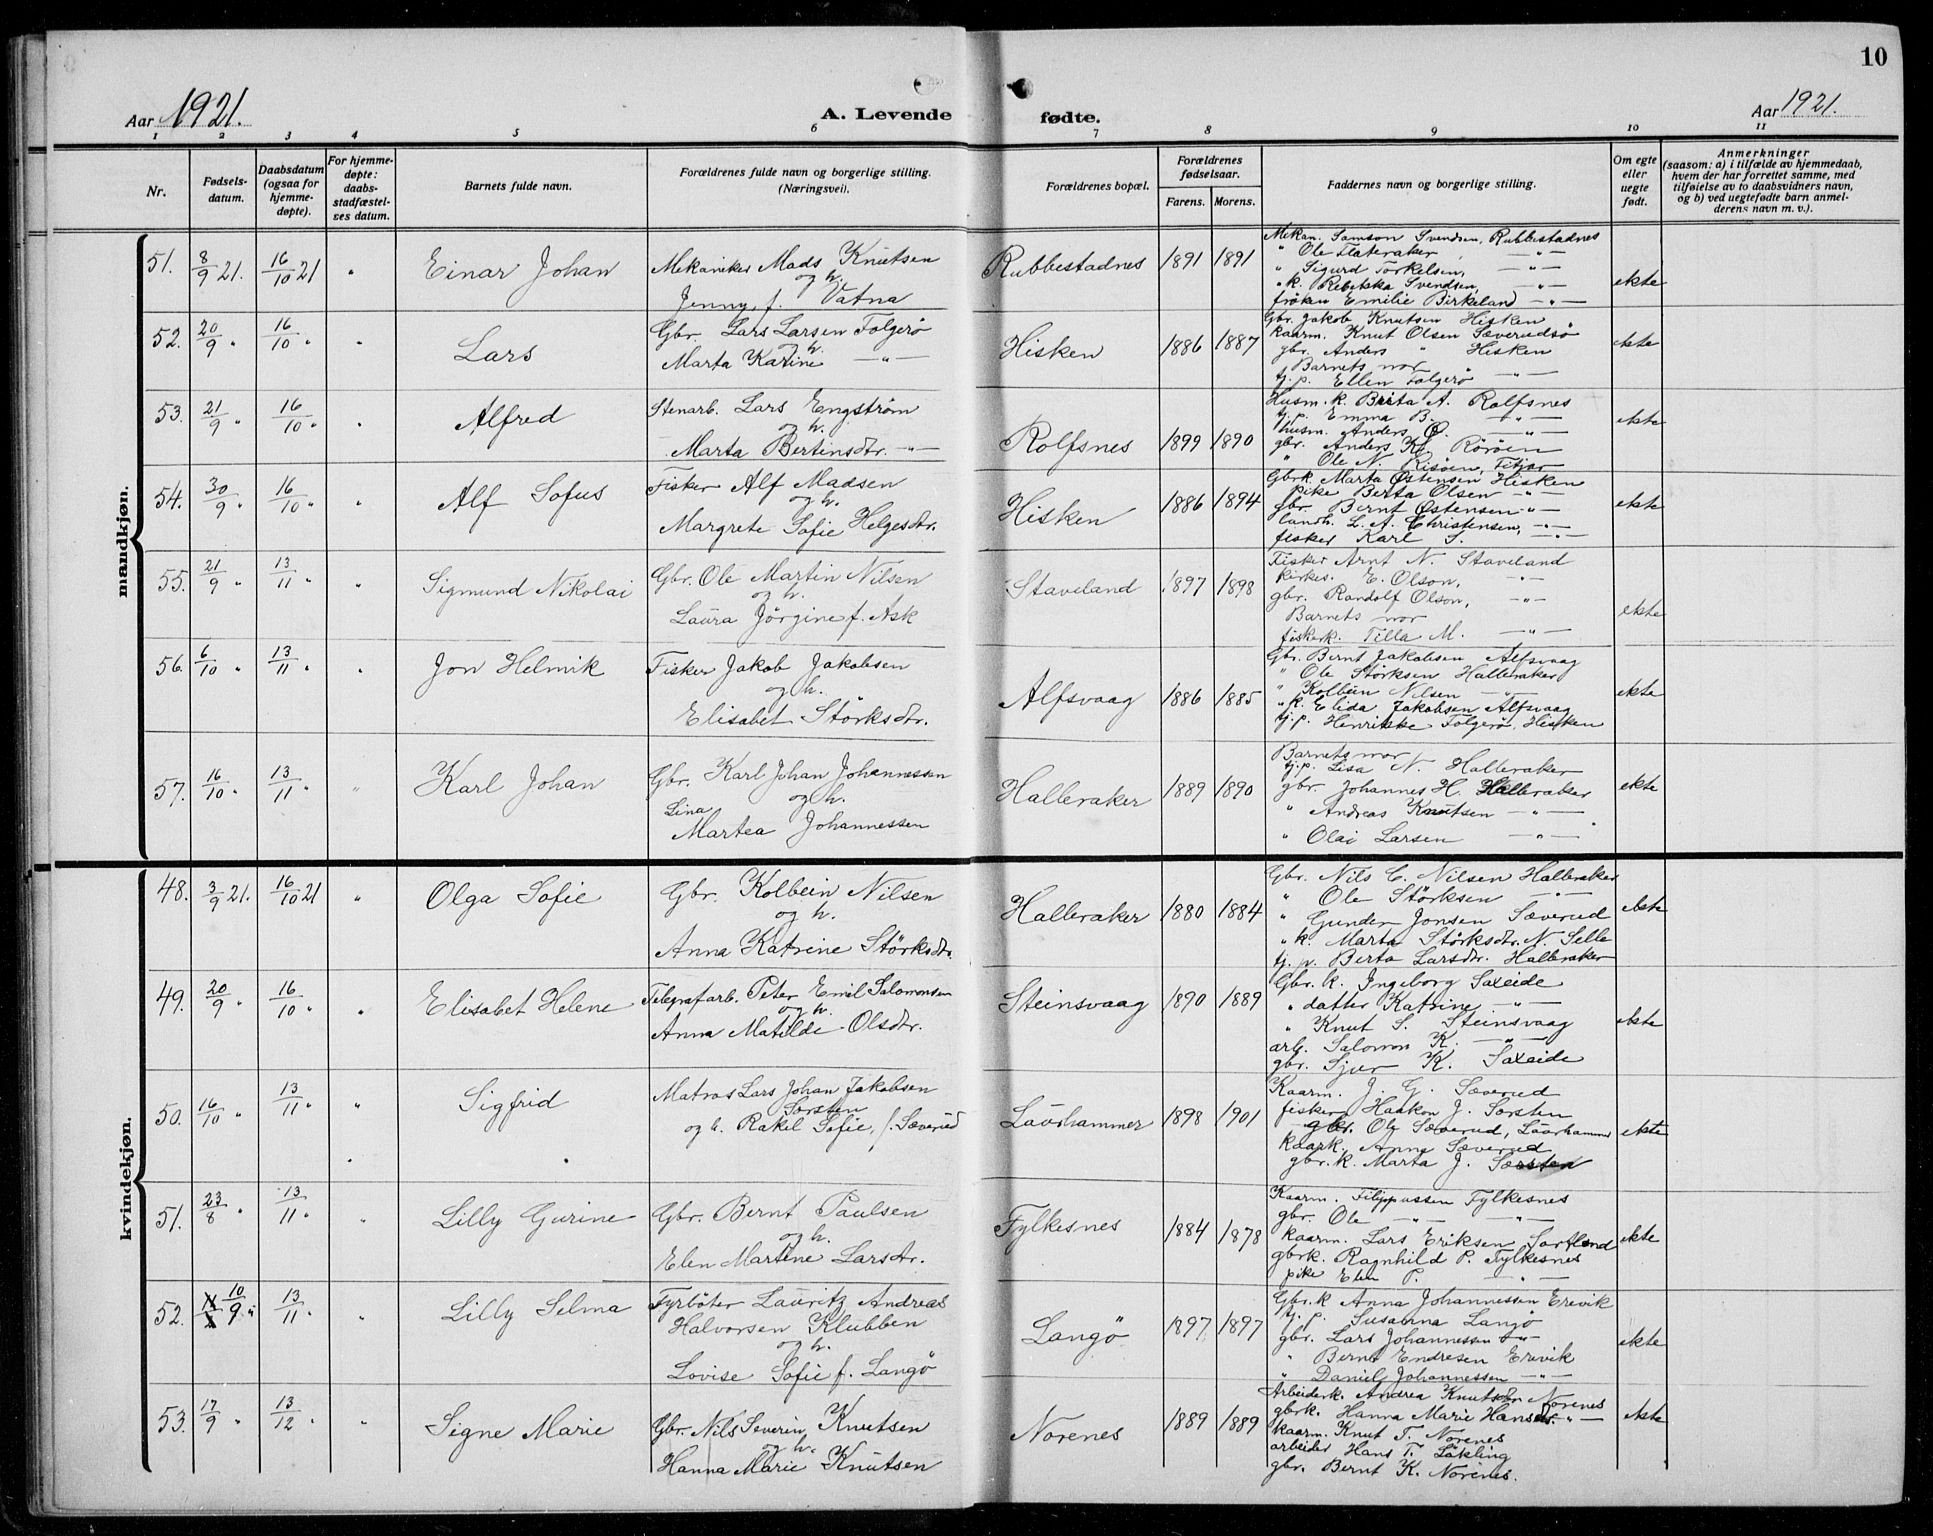 10
Aar 1921.
A. Levende fødte.
Aar 1921.
1 2 3 4 5 6 7 8 9 10 11
Nr.
Fødsels-
datum.
Daabsdatum
(ogsaa for
hjemme-
døpte).
For hjemme-
døpte:
daabs-
stadfæstel-
ses datum.
Barnets fulde navn.
Forældrenes fulde navn og borgerlige stilling.
(Næringsvei).
Forældrenes bopæl.
Forældrenes
fødselsaar.
Farens. Morens.
Faddernes navn og borgerlige stilling.
Om egte
eller
uegte
født.
Anmerkninger
(saasom: a) i tilfælde av hjemmedaab,
hvem der har forrettet samme, med
tilføielse av to daabsvidners navn,
og b) ved uegtefødte barn anmel-
derens navn m. v.).
mandkjøn.
51. 8/9 21. 16/10 21 " Einar Johan
Mekaniker Mads Knutsen
og h.
Jenny, f. Vatna
Rubbestadnes 1891 1891
Mekan. Samson Svendsen, Rubbestadnes
" Ole Flateraker, —"—
" Sigurd Torkelsen, —"—
" k. Rebekka Svendsen, —"—
frøken Emilie Birkeland —"—
ekte
52. 20/9 " 16/10 " " Lars
Gbr. Lars Larsen Folgerö
og h.
Marta Katrine —"—
Hisken 1886 1887
Gbr. Jakob Knutsen Hisken
kaarm. Knut Olsen Sæverudsö
gbr. Anders " Hisken
Barnets mor —"—
tj.p. Ellen Folgerö
ekte
53. 21/9 " 16/10 " " Alfred
Stenarb. Lars Engström
og h.
Marta Bertinsdtr. —"—
Rolfsnes 1899 1890
Husm. k. Brita A. Rolfsnes
tj.p. Emma B. —"—
husm. Anders Ø. —"—
gbr. Anders K. Röröen
" Ole N. Risöen, Fitjar
ekte
54. 30/9 " 16/10 " " Alf Sofus
Fisker Alf Madsen
og h.
Margrete Sofie Helgesdtr.
Hisken 1886 1894
Gbrk. Marta Østensen Hisken
pike Berta Olsen —"—
gbr. Bernt Østensen —"—
landh. L. A. Christensen, —"—
fisker Karl S. —"—
ekte
55. 21/9 " 13/11 " " Sigmund Nikolai
Gbr. Ole Martin Nilsen
og h.
Laura Jörgine f. Ask
Staveland 1897 1898
Fisker Arnt N. Staveland
kirkes. E. Olson, —"—
gbr. Randolf Olson, —"—
Barnets mor
fiskerk. Tilla M. —"—
ekte
56. 6/10 " 13/11 " " Jon Helmik
Fisker Jakob Jakobsen
og h.
Elisabet Störksdtr.
Alfsvaag 1886 1885
Gbr. Bernt Jakobsen Alfsvaag
" Ole Störksen Halleraker
" Kolbein Nilsen —"—
" k. Elida Jakobsen Alfsvaag
tj.p. Henrikke Folgerö, Hisken
ekte
57. 16/10 " 13/11 " " Karl Johan
Gbr. Karl Johan Johannessen
og h.
Lina
Martea Johannessen
Halleraker 1889 1890
Barnets mor
tj.p. Lisa N. Halleraker
gbr. Johannes H. Halleraker
" Andreas Knutsen —"—
" Olai Larsen —"—
ekte
kvindekjøn.
48. 3/9 21. 16/10 21 " Olga Sofie
Gbr. Kolbein Nilsen
og h.
Anna Katrine Störksdtr.
Halleraker 1880 1884
Gbr. Nils C. Nilsen Halleraker
" Ole Störksen —"—
" Gunder Jonsen Sæverud
" k. Marta Störksdtr. N. Selle
tj.p. Berta Larsdtr. Halleraker
ekte
49. 20/9 " 16/10 " " Elisabet Helene
Telegrafarb. Peter Emil Salomonsen
og h.
Anna Matilde Olsdtr.
Steinsvaag 1890 1889
Gbr. k. Ingeborg Saxeide
" datter Katrine —"—
" Knut S. Steinsvaag
arb. Salomon K. —"—
gbr. Sjur K. Saxeide
ekte
50. 16/10 " 13/11 " " Sigfrid
Matros Lars Johan Jakobsen
Sorsten
og h. Rakel Sofie, f. Sæverud
Laurhammer 1898 1901
Kaarm. J. G. Sæverud
fisker Haakon J. Sorsten
gbr. Ole Sæverud, Laurhammer
kaark. Anna Sæverud
gbr. k. Marta J. Sorsten
ekte
51. 23/8 " 13/11 " " Lilly Gurine
Gbr. Bernt Paulsen
og h.
Elen Martine Larsdtr.
Fylkesnes 1884 1878
Kaarm. Filippussen Fylkesnes
gbr. Ole —"— —"—
kaarm. Lars Eriksen Sortland
gbrk. Ragnhild P. Fylkesnes
pike Elen P. —"—
ekte
52. 10/9 " 13/11 " " Lilly Selma
Fyrböter Lauritz Andreas
Halvorsen Klubben
og h.
Lovise Sofie f. Langö
Langö 1897 1897
Gbr. k Anna Johannessen Erevik
tj.p. Susanna Langö
gbr. Lars Johannessen —"—
" Bernt Endresen Erevik
" Daniel Johannessen —"—
ekte
53. 17/9 " 13/12 " " Signe Marie
Gbr. Nils Severin Knutsen
og h.
Hanna Marie Knutsen
Norenes 1889 1889
Arbeiderk. Andrea Knutsdtr Norenes
gbrk. Hanna Marie Hansdtr. —"—
kaarm. Knut T. Norenes
arbeider Hans T. Läkling
gbr. Bernt K. Norenes.
ekte